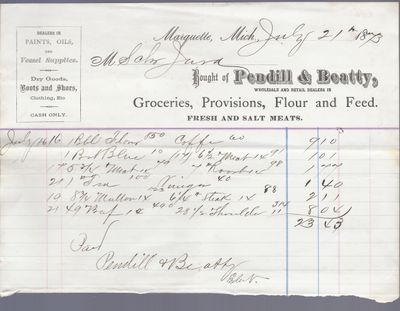 DEALERS IN
PAINTS, OILS,
AND
Vessel Supplies.
Dry Goods,
Boots and Shoes,
Clothing, Etc
CASH ONLY.
Marquette, Mich. July 21st 1873
M Schr
Bought of Pendill & Beatty,
WHOLESALE AND RETAIL DEALERS IN
Groceries, Provisions, Flour and Feed.
FRESH AND SALT MEATS.
July 16 1 Bbl Flour 850 Coffee 60 9 10
1 Bot Blue 10 6 1/2 Meat 14 91 1 01
Meat 14 Roast 14 98
21 Tea 100 40 1 40
19 Mutton 14 Steak 14 88 2 11
21 49 Beef 1¢ 490 28 1/2 Shoulder 11 314 8 04
23 43
Paid
Pendill & Beatty